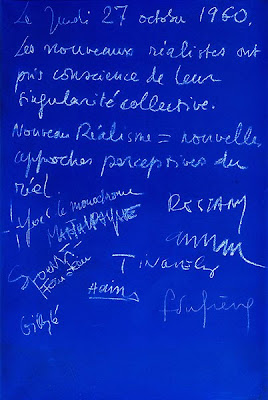 Le Jeudi 27 octobre 1960.
Les nouveaux réalistes ont
pris conscience de leur
singularité collective.
Nouveau Réalisme = nouvelles
approches perceptives du
réel.
Yves le monochrome
RESTANY
Martial RAYSSE
arman
Spoerri
TINGUELY
Hains
f dufrêne